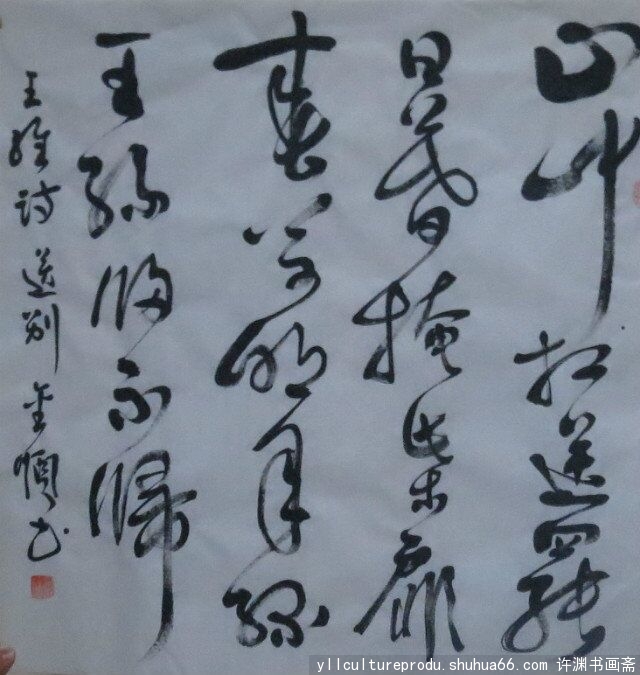 山中相送罷
日暮掩柴扉
春草明年綠
王孫歸不歸
王維詩 送别 金順书
yllcultureprodu.shuhua66.com 许渊书画斋